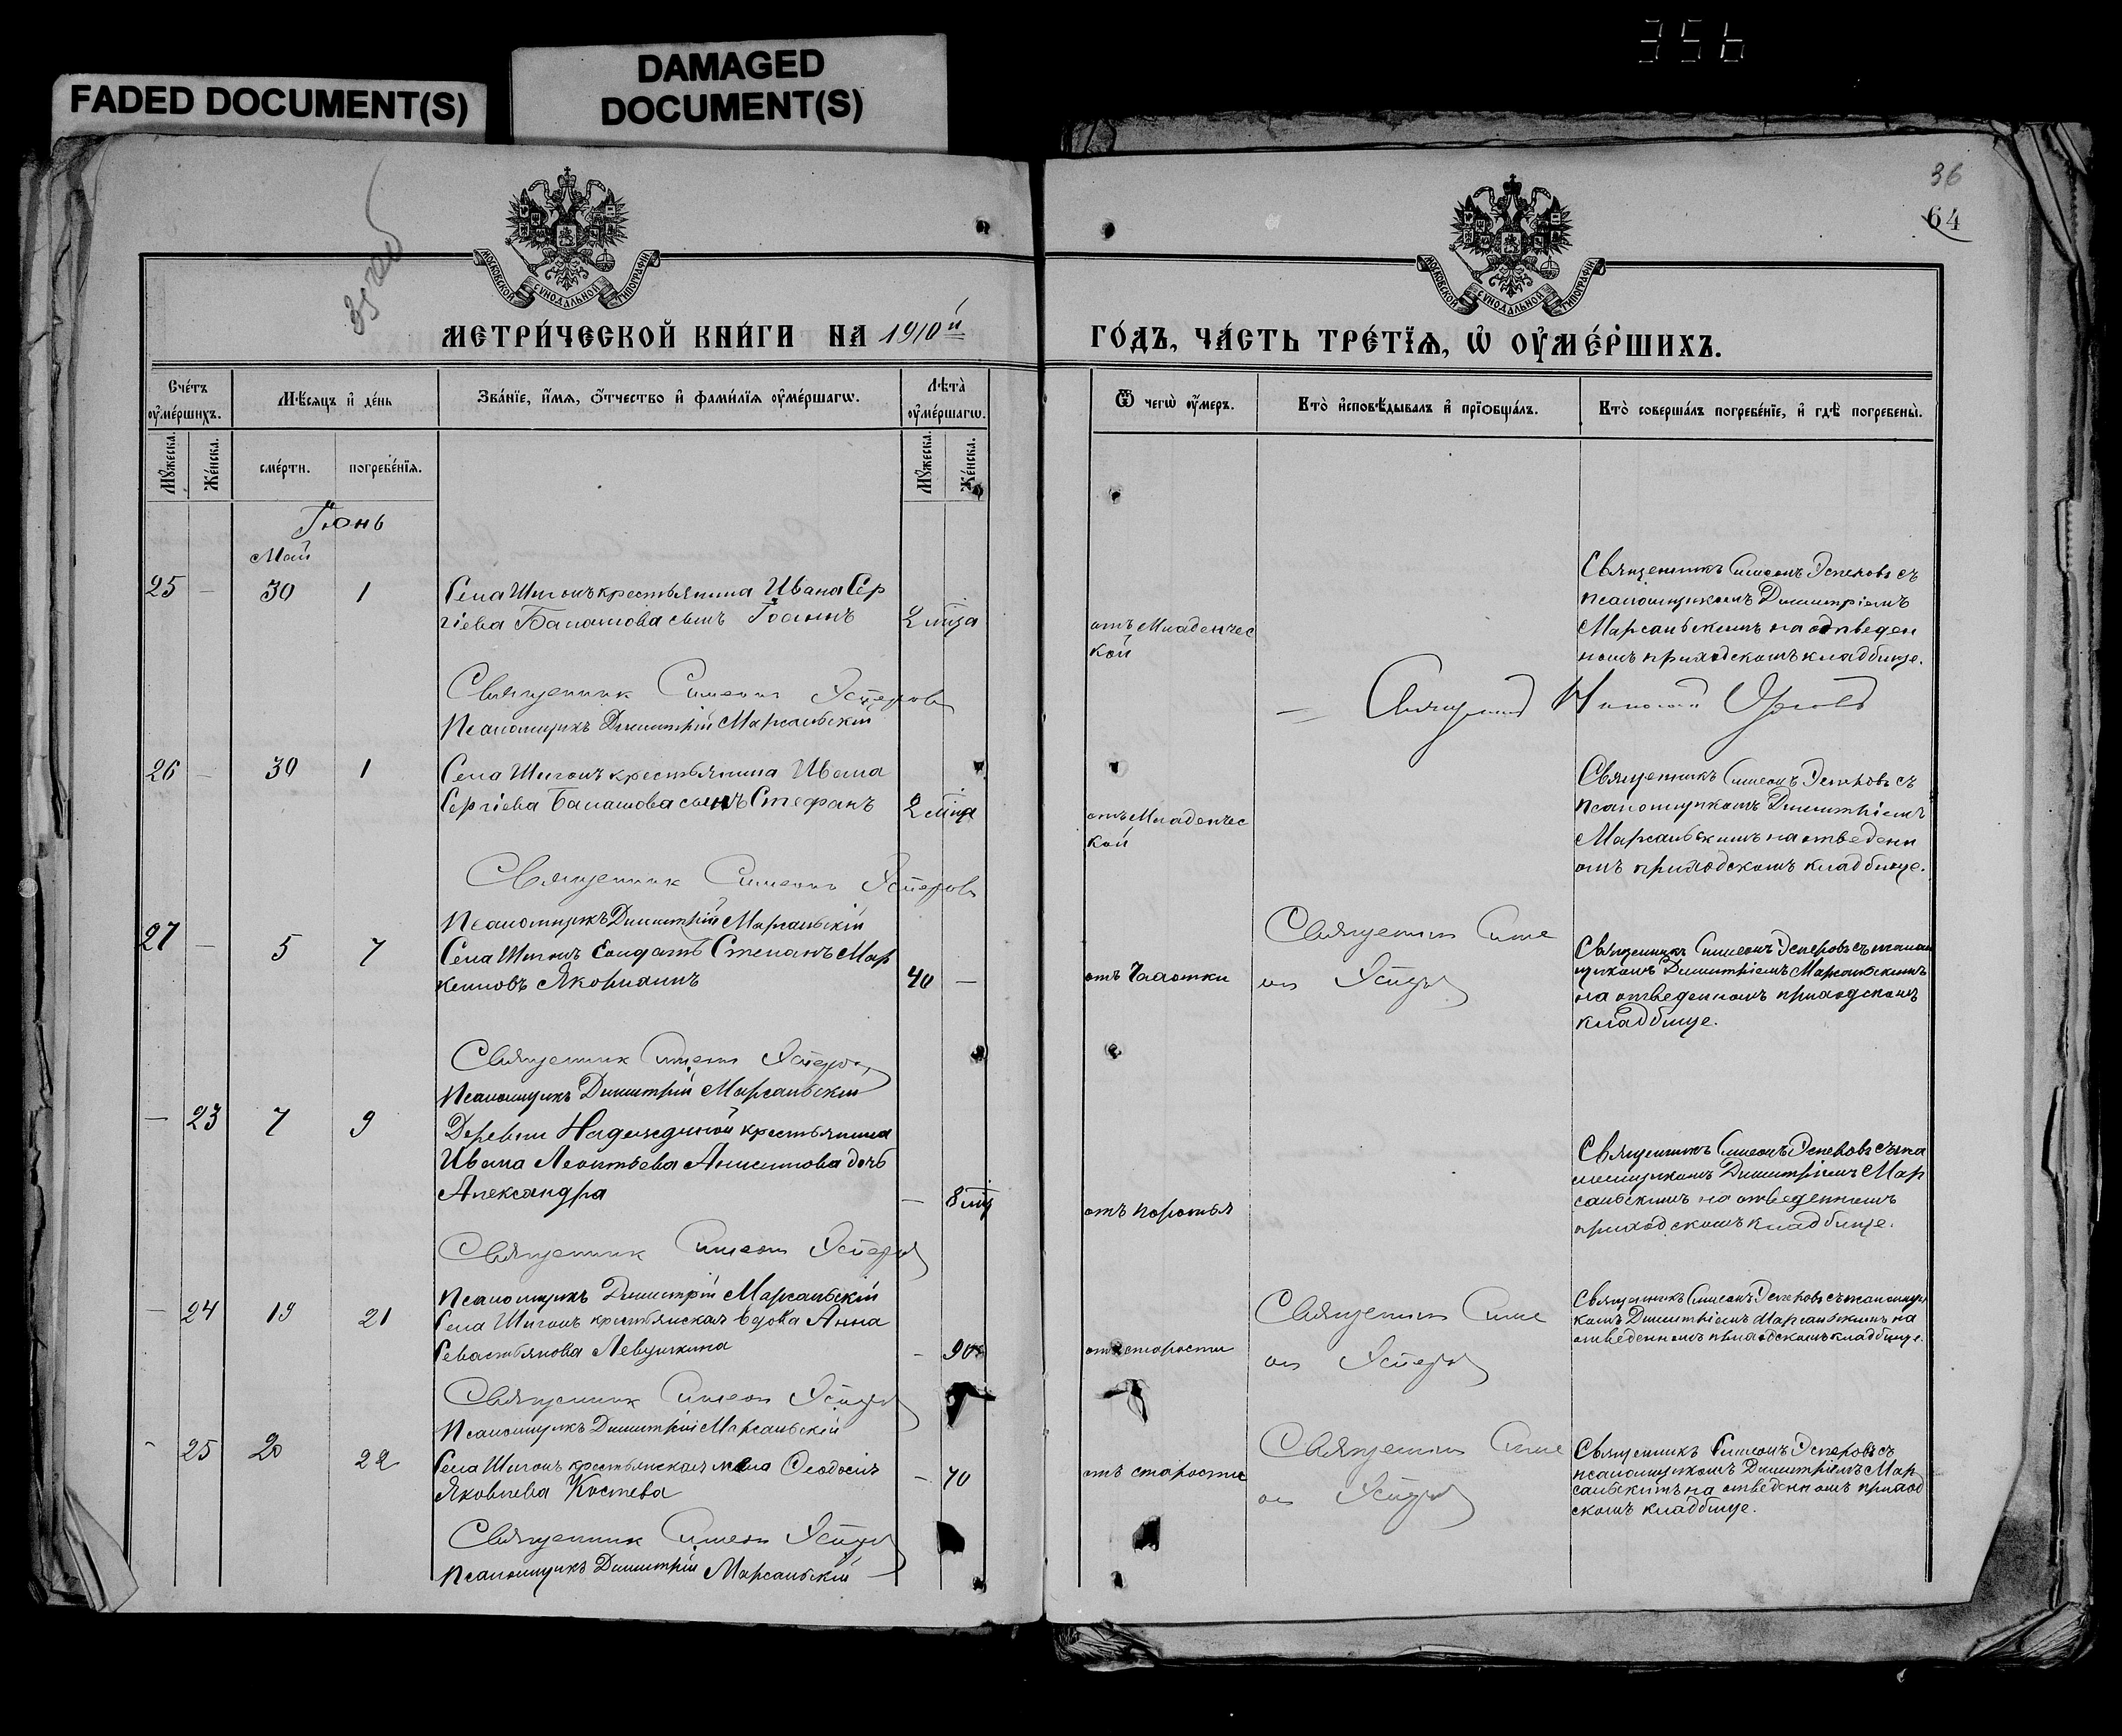 356
FADED DOCUMENT(S)
DAMAGED
DOCUMENT(S)
36
64
МОСКОВСКОЙ СѴНОДАЛЬНОЙ ТИПОГРАФІИ
МОСКОВСКОЙ СѴНОДАЛЬНОЙ ТИПОГРАФІИ
МЕТРИ́ЧЕСКОЙ КНИ́ГИ НА 1910й
ГО́ДЪ, ЧА́СТЬ ТРЕ́ТЇѦ, Ѡ҆ ОУ҆МЕ́РШИХЪ.
Сче́тъ оу҆ме́ршихъ.
Мѣ́сяцъ и҆ де́нь
Зва́нїе, и҆́мѧ, ѻ҆́тчество и҆ фами́лїѧ оу҆ме́ршагѡ.
Лѣ́та оу҆ме́ршагѡ.
Ѿ чегѡ̀ оу҆́меръ.
Кто̀ и҆сповѣ́дывалъ и҆ прїѻбща́лъ.
Кто̀ соверша́лъ погребе́нїе, и҆ гдѣ̀ погребены̀.
Мꙋ́жеска.
Же́нска.
сме́рти.
погребе́нїѧ.
Мꙋ́жеска.
Же́нска.
Іюнь
Май
25 – 30 1
Села Шигонъ крестьянина Ивана Сер
гіева Балашова сынъ Іоаннъ
2 мца
отъ Младенчес
кой
Священникъ Симеонъ Эсперовъ съ
псаломщикомъ Димитріемъ
Марсальскимъ на отведен
номъ приходскомъ кладбище.
Священник Симеонъ Эсперовъ
Псаломщикъ Димитрій Марсальскій
– Священник Николай
26 – 30 1
Села Шигонъ крестьянина Ивана
Сергіева Балашова сынъ Стефанъ
2 мца
отъ Младенчес
кой
Священникъ Симеонъ Эсперовъ съ
псаломщикомъ Димитріемъ
Марсальскимъ на отведенн
омъ приходскомъ кладбище.
Священник Симеонъ Эсперовъ
Псаломщикъ Димитрій Марсальскій
27 – 5 7
Села Шигонъ Солдатъ Степанъ Мар
келловъ Якорнаинъ
40 –
отъ Чахотки
Священник Симе
он Эсперов
Священникъ Симеонъ Эсперовъ съ псалом
щикомъ Димитріемъ Марсальскимъ
на отведенномъ приходскомъ
кладбище.
Священник Симеон Эсперов
Псаломщикъ Димитрій Марсальскій
– 23 7 9
Деревни Надеждиной крестьянина
Ивана Леонтьева Анисимова дочь
Александра
– 8 мц
отъ поноса
Священникъ Симеонъ Эсперовъ съ пса
ломщикомъ Димитріемъ Мар
сальскимъ на отведенномъ
приходскомъ кладбище.
Священник Симеон Эсперов
Псаломщикъ Димитрій Марсальскій
– 24 19 21
Села Шигонъ крестьянская вдова Анна
Севастьянова Левушкина
– 90
отъ старости
Священник Симе
он Эсперов
Священникъ Симеонъ Эсперовъ съ псаломщи
комъ Димитріемъ Марсальскимъ на
отведенномъ приходскомъ кладбище.
Священник Симеон Эсперов
Псаломщикъ Димитрій Марсальскій
- 25 20 22
Села Шигонъ крестьянская жена Ѳеодосія
Яковлева Костева
– 70
отъ старости
Священник Симе
он Эсперов
Священникъ Симеонъ Эсперовъ съ
псаломщикомъ Димитріемъ Мар
сальскимъ на отведенномъ приход
скомъ кладбище.
Священник Симеон Эсперов
Псаломщикъ Димитрій Марсальскій